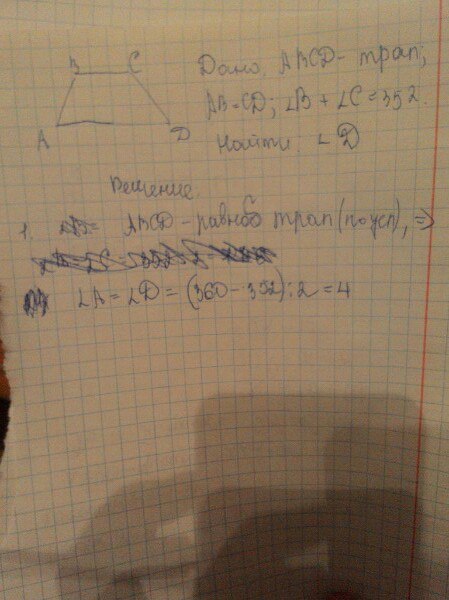 B C
Дано: ABCD - трап;
AB=CD; ∠B + ∠C = 352
A D
Найти: ∠D
Решение.
1. ABCD - равнбо трап (по усл), ⇒
∠A = ∠D = (360 - 352) : 2 = 4